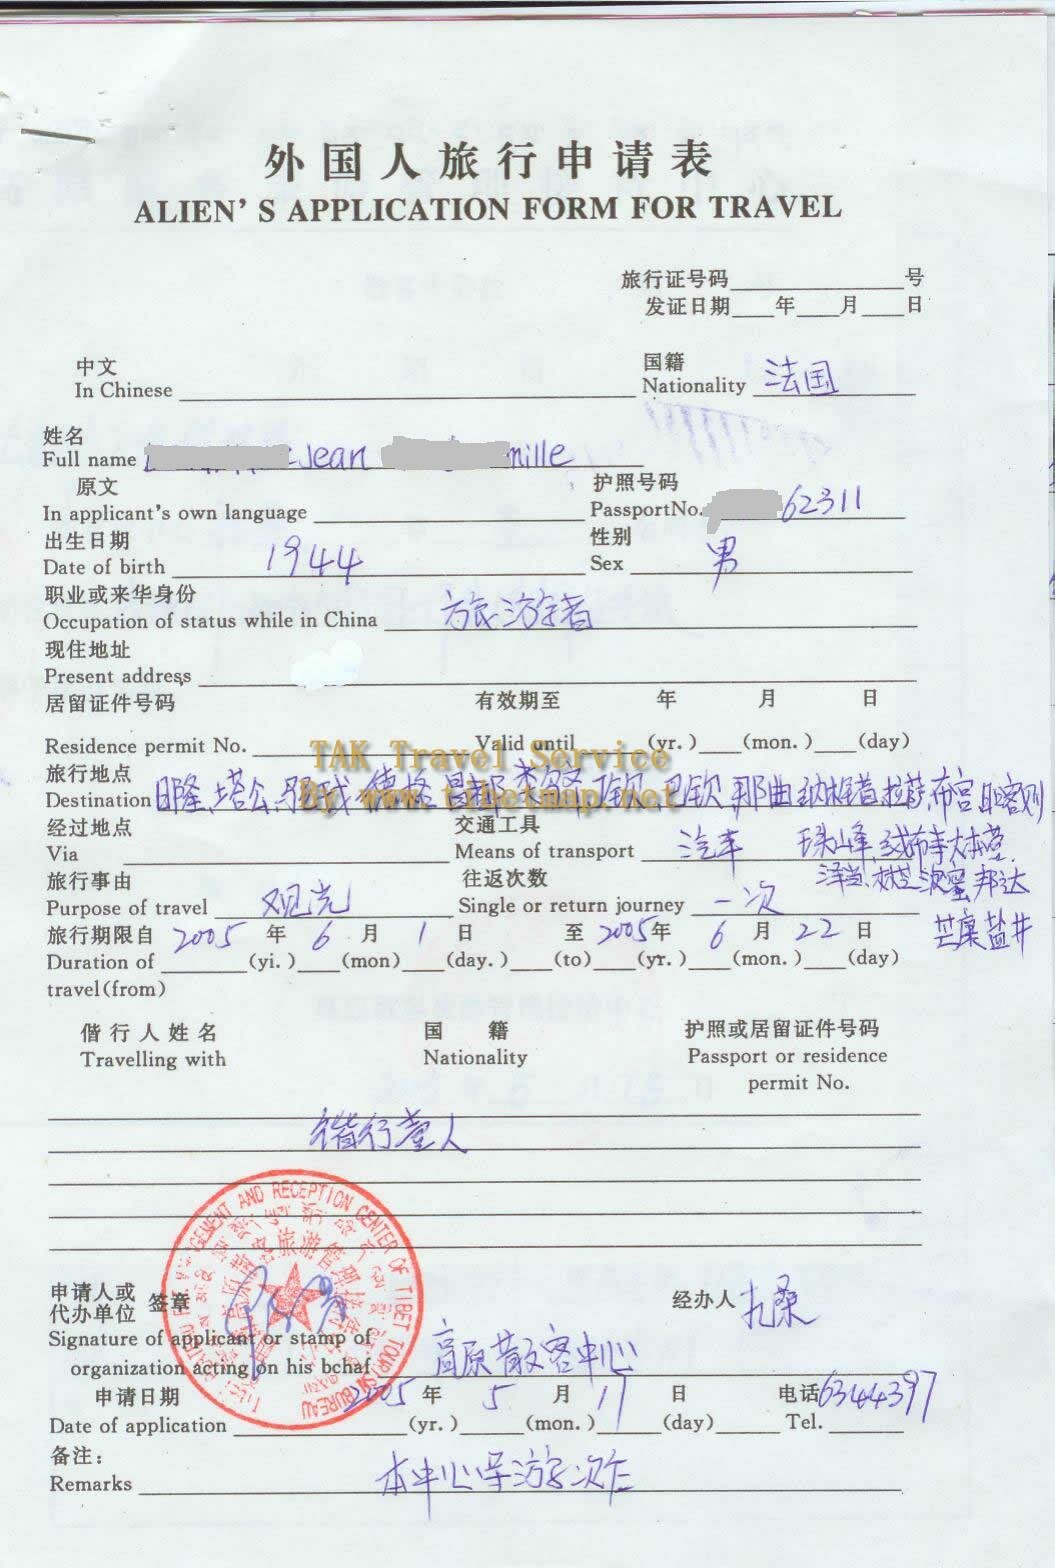 外国人旅行申请表
ALIEN'S APPLICATION FORM FOR TRAVEL
旅行证号码 号
发证日期 年 月 日
中文 国籍
In Chinese Nationality 法国
姓名
Full name Jean mille
原文 护照号码
In applicant's own language PassportNo. 62311
出生日期 性别
Date of birth 1944 Sex 男
职业或来华身份
Occupation of status while in China 旅游者
现住地址
Present address
居留证件号码 有效期至 年 月 日
Residence permit No. Valid until (yr.) (mon.) (day)
TAK Travel Service
旅行地点
Destination 日隆、塔公、 德格 昌都 那曲 纳木错 拉萨、布宫 日喀则
By www.tibetmap.net
经过地点 交通工具
Via Means of transport 汽车 珠峰、绒布寺大本营、
泽当、林芝 波密 邦达
旅行事由 往返次数
Purpose of travel 观光 Single or return journey 一次
芒康 盐井
旅行期限自 2005 年 6 月 1 日 至 2005 年 6 月 22 日
Duration of (yi.) (mon) (day.) (to) (yr.) (mon.) (day)
travel(from)
偕行人姓名 国 籍 护照或居留证件号码
Travelling with Nationality Passport or residence
permit No.
偕行壹人
GEMENT AND RECEPTION CENTER OF TIBET TOURISM BUREAU
申请人或
代办单位 签章 经办人 扎桑
Signature of applicant or stamp of
organization acting on his bchaf 高原散客中心
申请日期 2005 年 5 月 17 日 电话 6344397
Date of application (yr.) (mon.) (day) Tel.
备注：
Remarks 本中心导游次仁